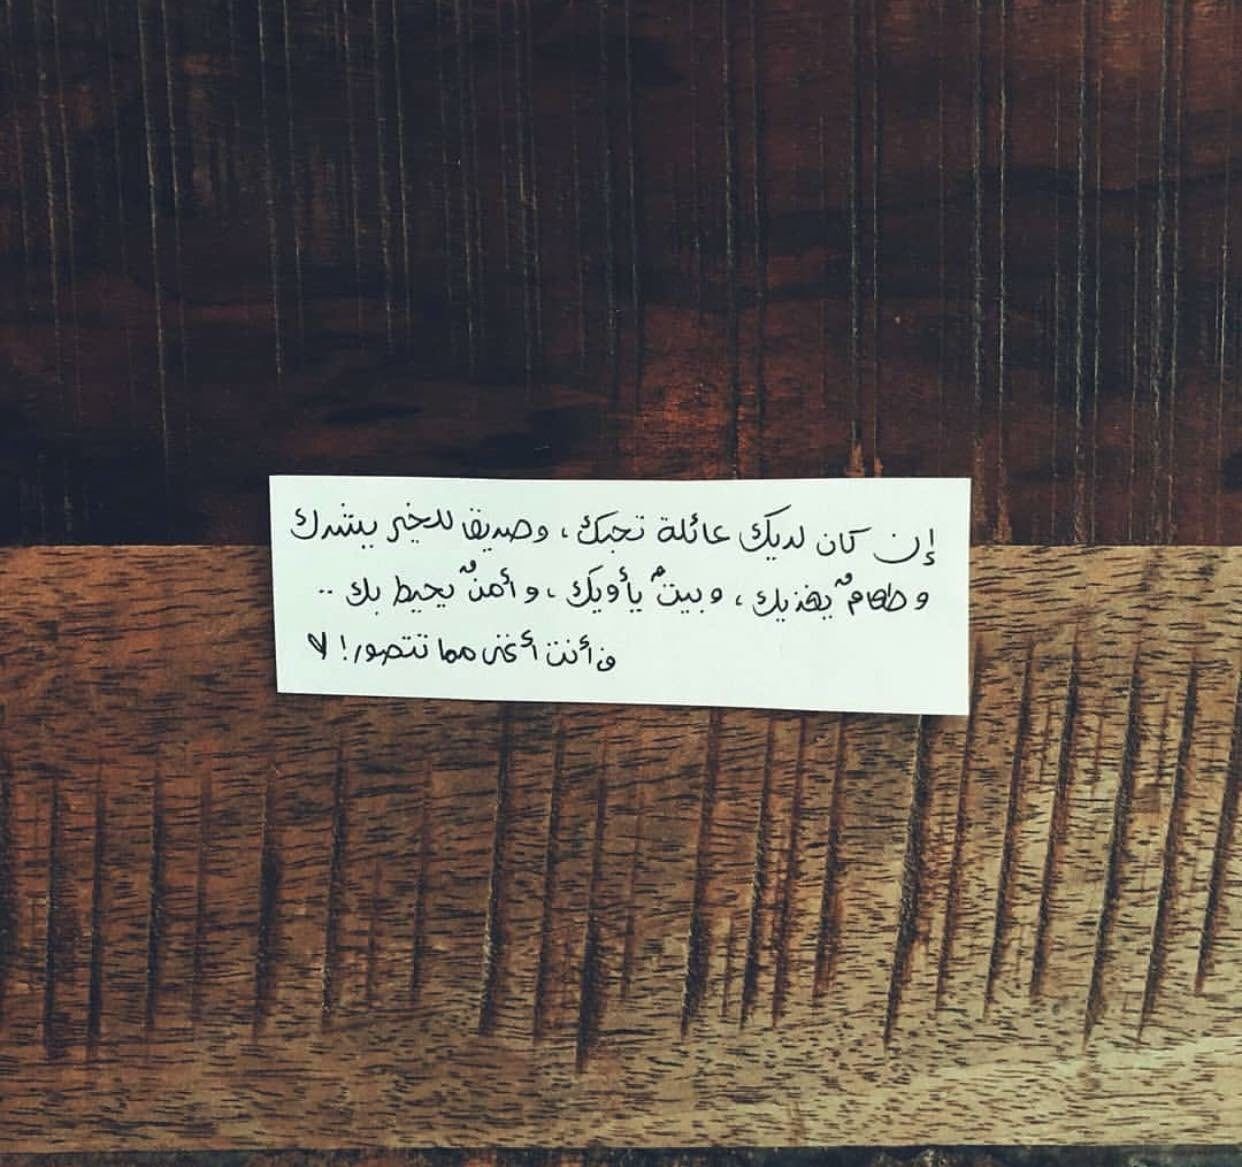 إن كان لديك عائلة تحبك، وصديق للخير يشدك
وطعامٌ يغذيك، وبيتٌ يأويك، وأمنٌ يحيط بك ..
فأنت أغنى مما تتصور! ♡